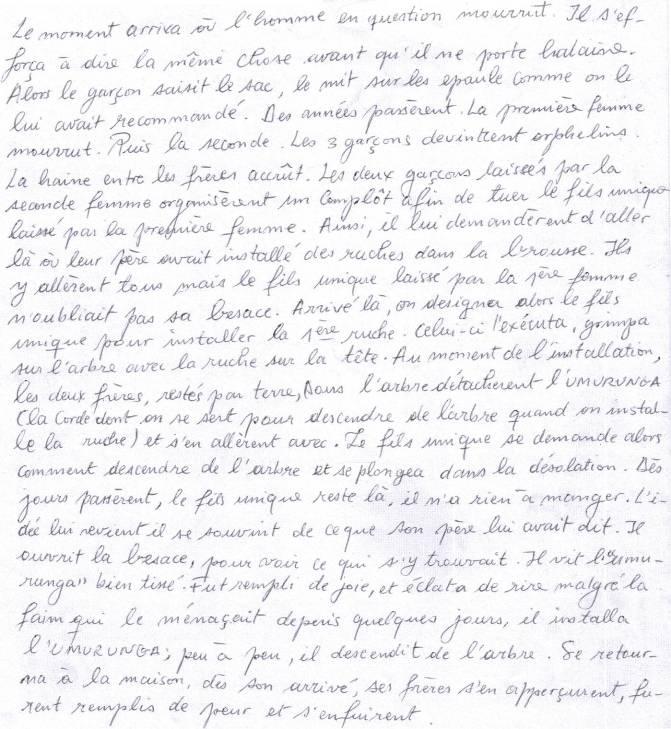 Le moment arriva où l'homme en question mourrut. Il s'ef-
força à dire la même chose avant qu'il ne porte halaine.
Alors le garçon saisit le sac, le mit sur les epaule comme on le
lui avait recommandé. Des années passèrent. La première femme
mourrut. Puis la seconde. Les 3 garçons devintrent orphelins.
La haine entre les frères accrût. Les deux garçons laissés par la
seconde femme organisèrent un complôt afin de tuer le fils unique
laissé par la première femme. Ainsi, il lui demandèrent d'aller
là où leur père avait installé des ruches dans la brousse. Ils
y allèrent tous mais le fils unique laissé par la 1ère femme
n'oubliait pas sa besace. Arrivé là, on designa alors le fils
unique pour installer la 1ère ruche. Celui-ci l'exécuta, grimpa
sur l'arbre avec la ruche sur la tête. Au moment de l'installation,
les deux frères, restés par terre, sous l'arbre détachèrent l'UMURUNGA
(la corde dont on se sert pour descendre de l'arbre quand on instal-
le la ruche) et s'en allèrent avec. Le fils unique se demande alors
comment descendre de l'arbre et se plongea dans la désolation. Dès
jours passèrent, le fils unique reste là, il n'a rien à manger. L'i-
dée lui revient il se souvint de ce que son père lui avait dit. Il
ouvrit la besace, pour voir ce qui s'y trouvait. Il vit l'"umu-
runga" bien tissé. Fut rempli de joie, et éclata de rire malgré la
faim qui le ménaçait depuis quelques jours, il installa
l'UMURUNGA; peu à peu, il descendit de l'arbre. Se retour-
na à la maison, dès son arrivé, ses frères s'en apperçurent, fu-
rent remplis de peur et s'enfuirent.